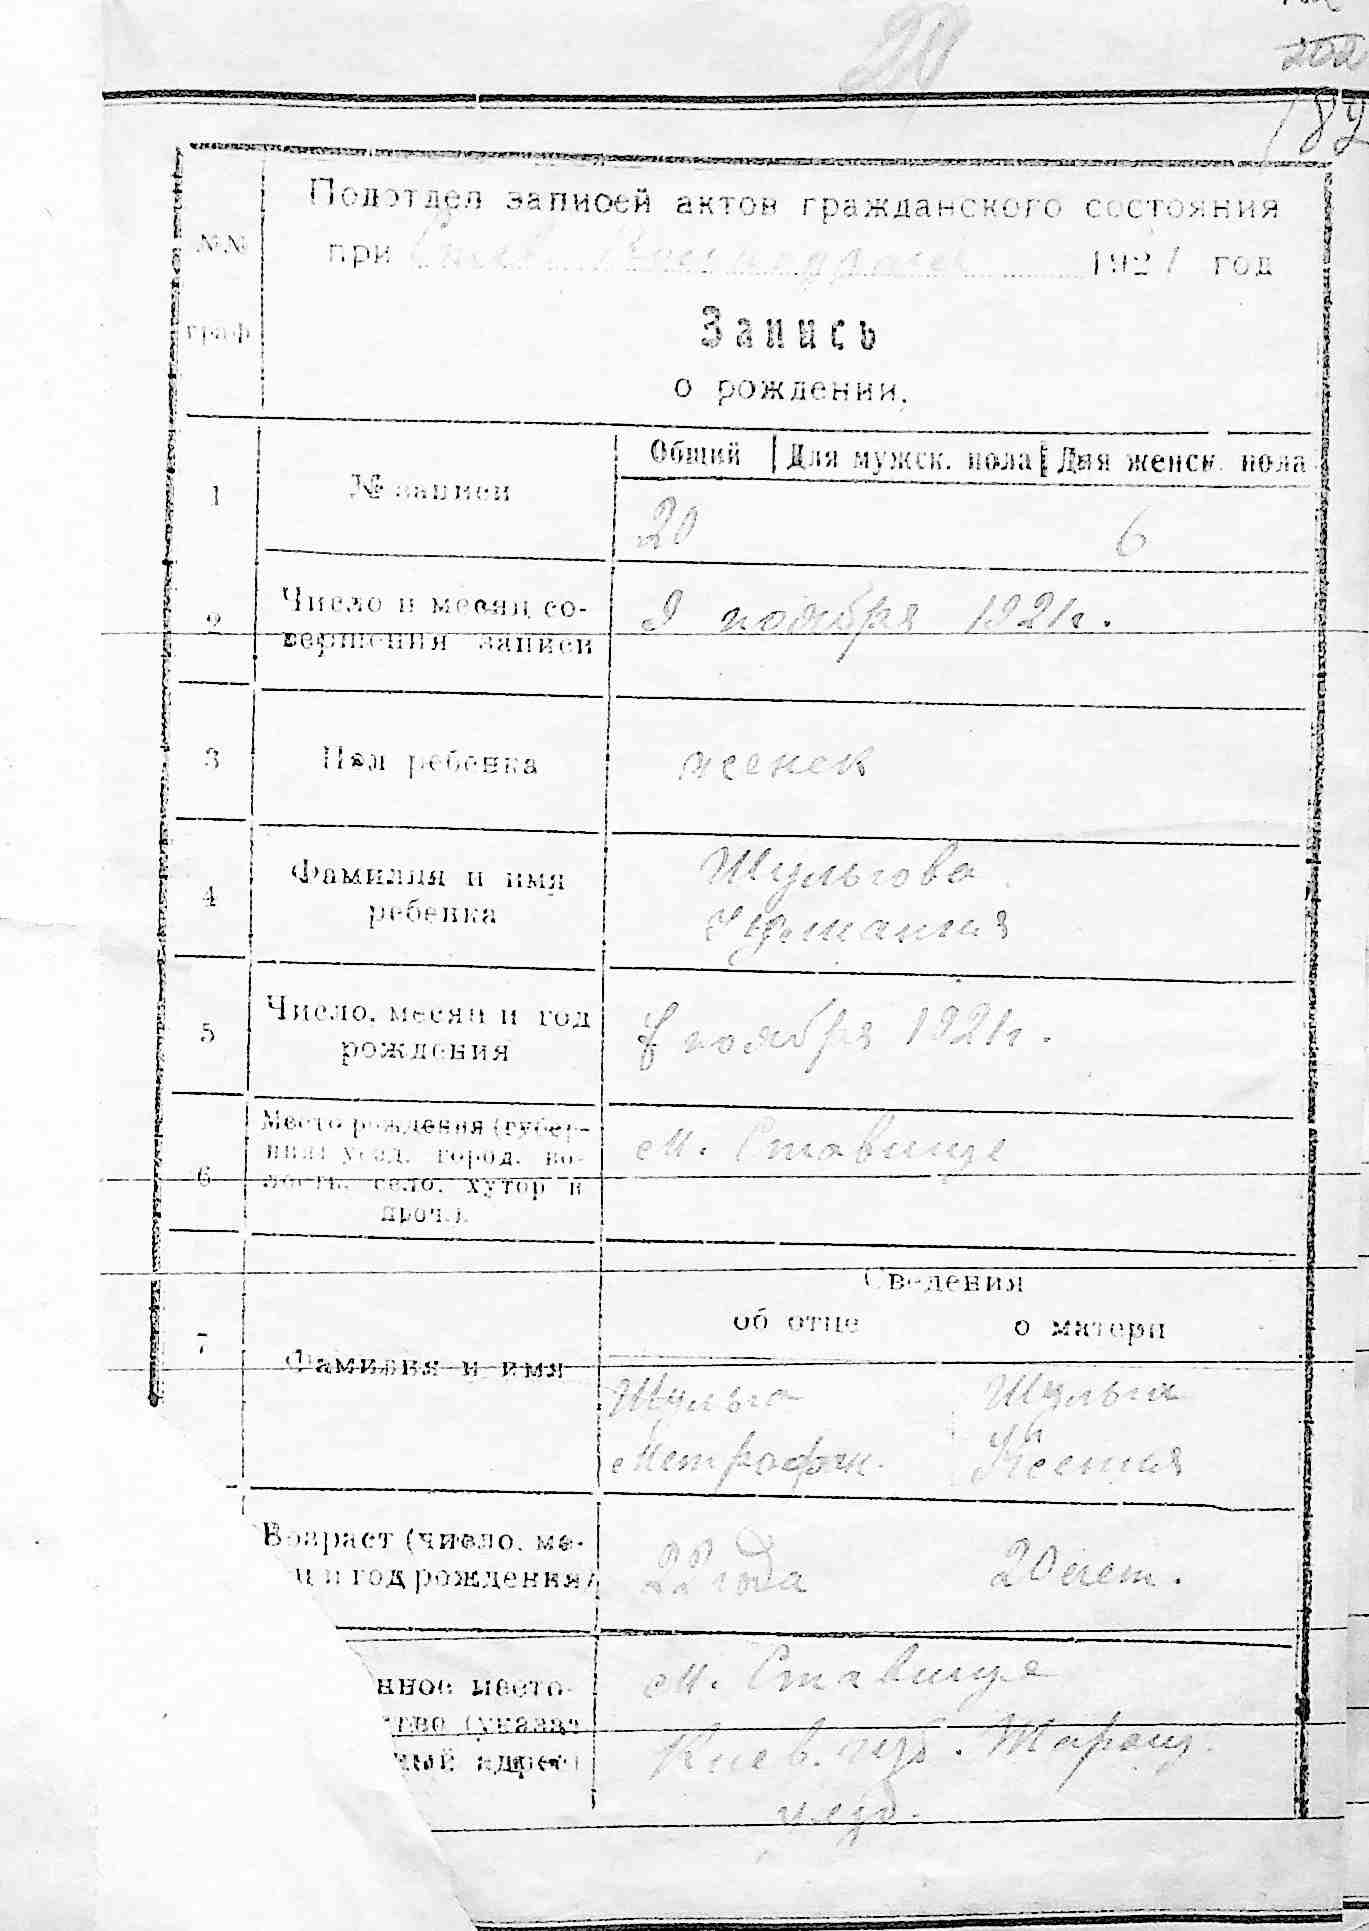 20
202
182
Подотдел записей актов гражданского состояния
№№
при 1921 год
граф
Запись
о рождении.
Общий Для мужск. пола Для женск. пола
1 № записи
20 6
2 Число и месяц со-
вершения записи
9 ноября 1921 г.
3 Пол ребенка женск
4 Фамилия и имя
ребенка
Шульгова
5 Число, месяц и год
рождения
ноября 1921 г.
6 Место рождения (губер-
ния уезд, город, во-
лость, село, хутор и
проч.).
м. Ставище
Сведения
об отце о матери
7 Фамилия и имя
Шульга Шульга
Метрофан Ксения
Возраст (число, ме-
ц и год рождения)
22 года 20 лет.
нное место-
ство (указат
ный адрес)
м. Ставище
Киев. губ. Таращ.
уезд.